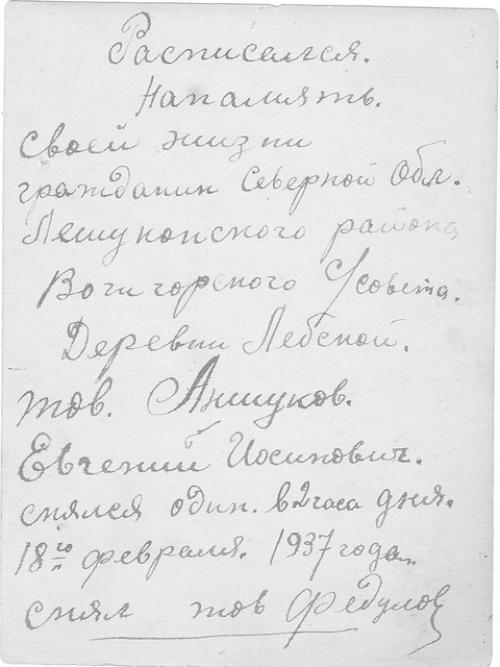 Расписался.
На память.
Своей жизни
гражданин Северной Обл.
Лешуконского района
Вочигорского С/совета.
Деревни Лебской.
тов. Аншуков.
Евгений Иосипович.
снялся один. в 2 часа дня.
18го февраля. 1937 года.
снял тов Федулов